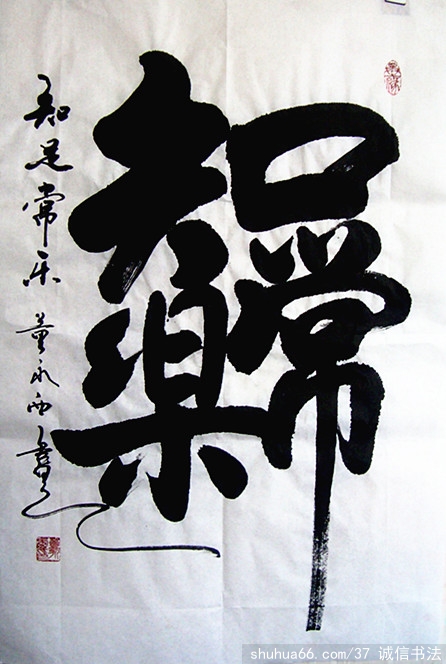 知足常樂
知足常乐 董永西書
shuhua66.com/37 诚信书法